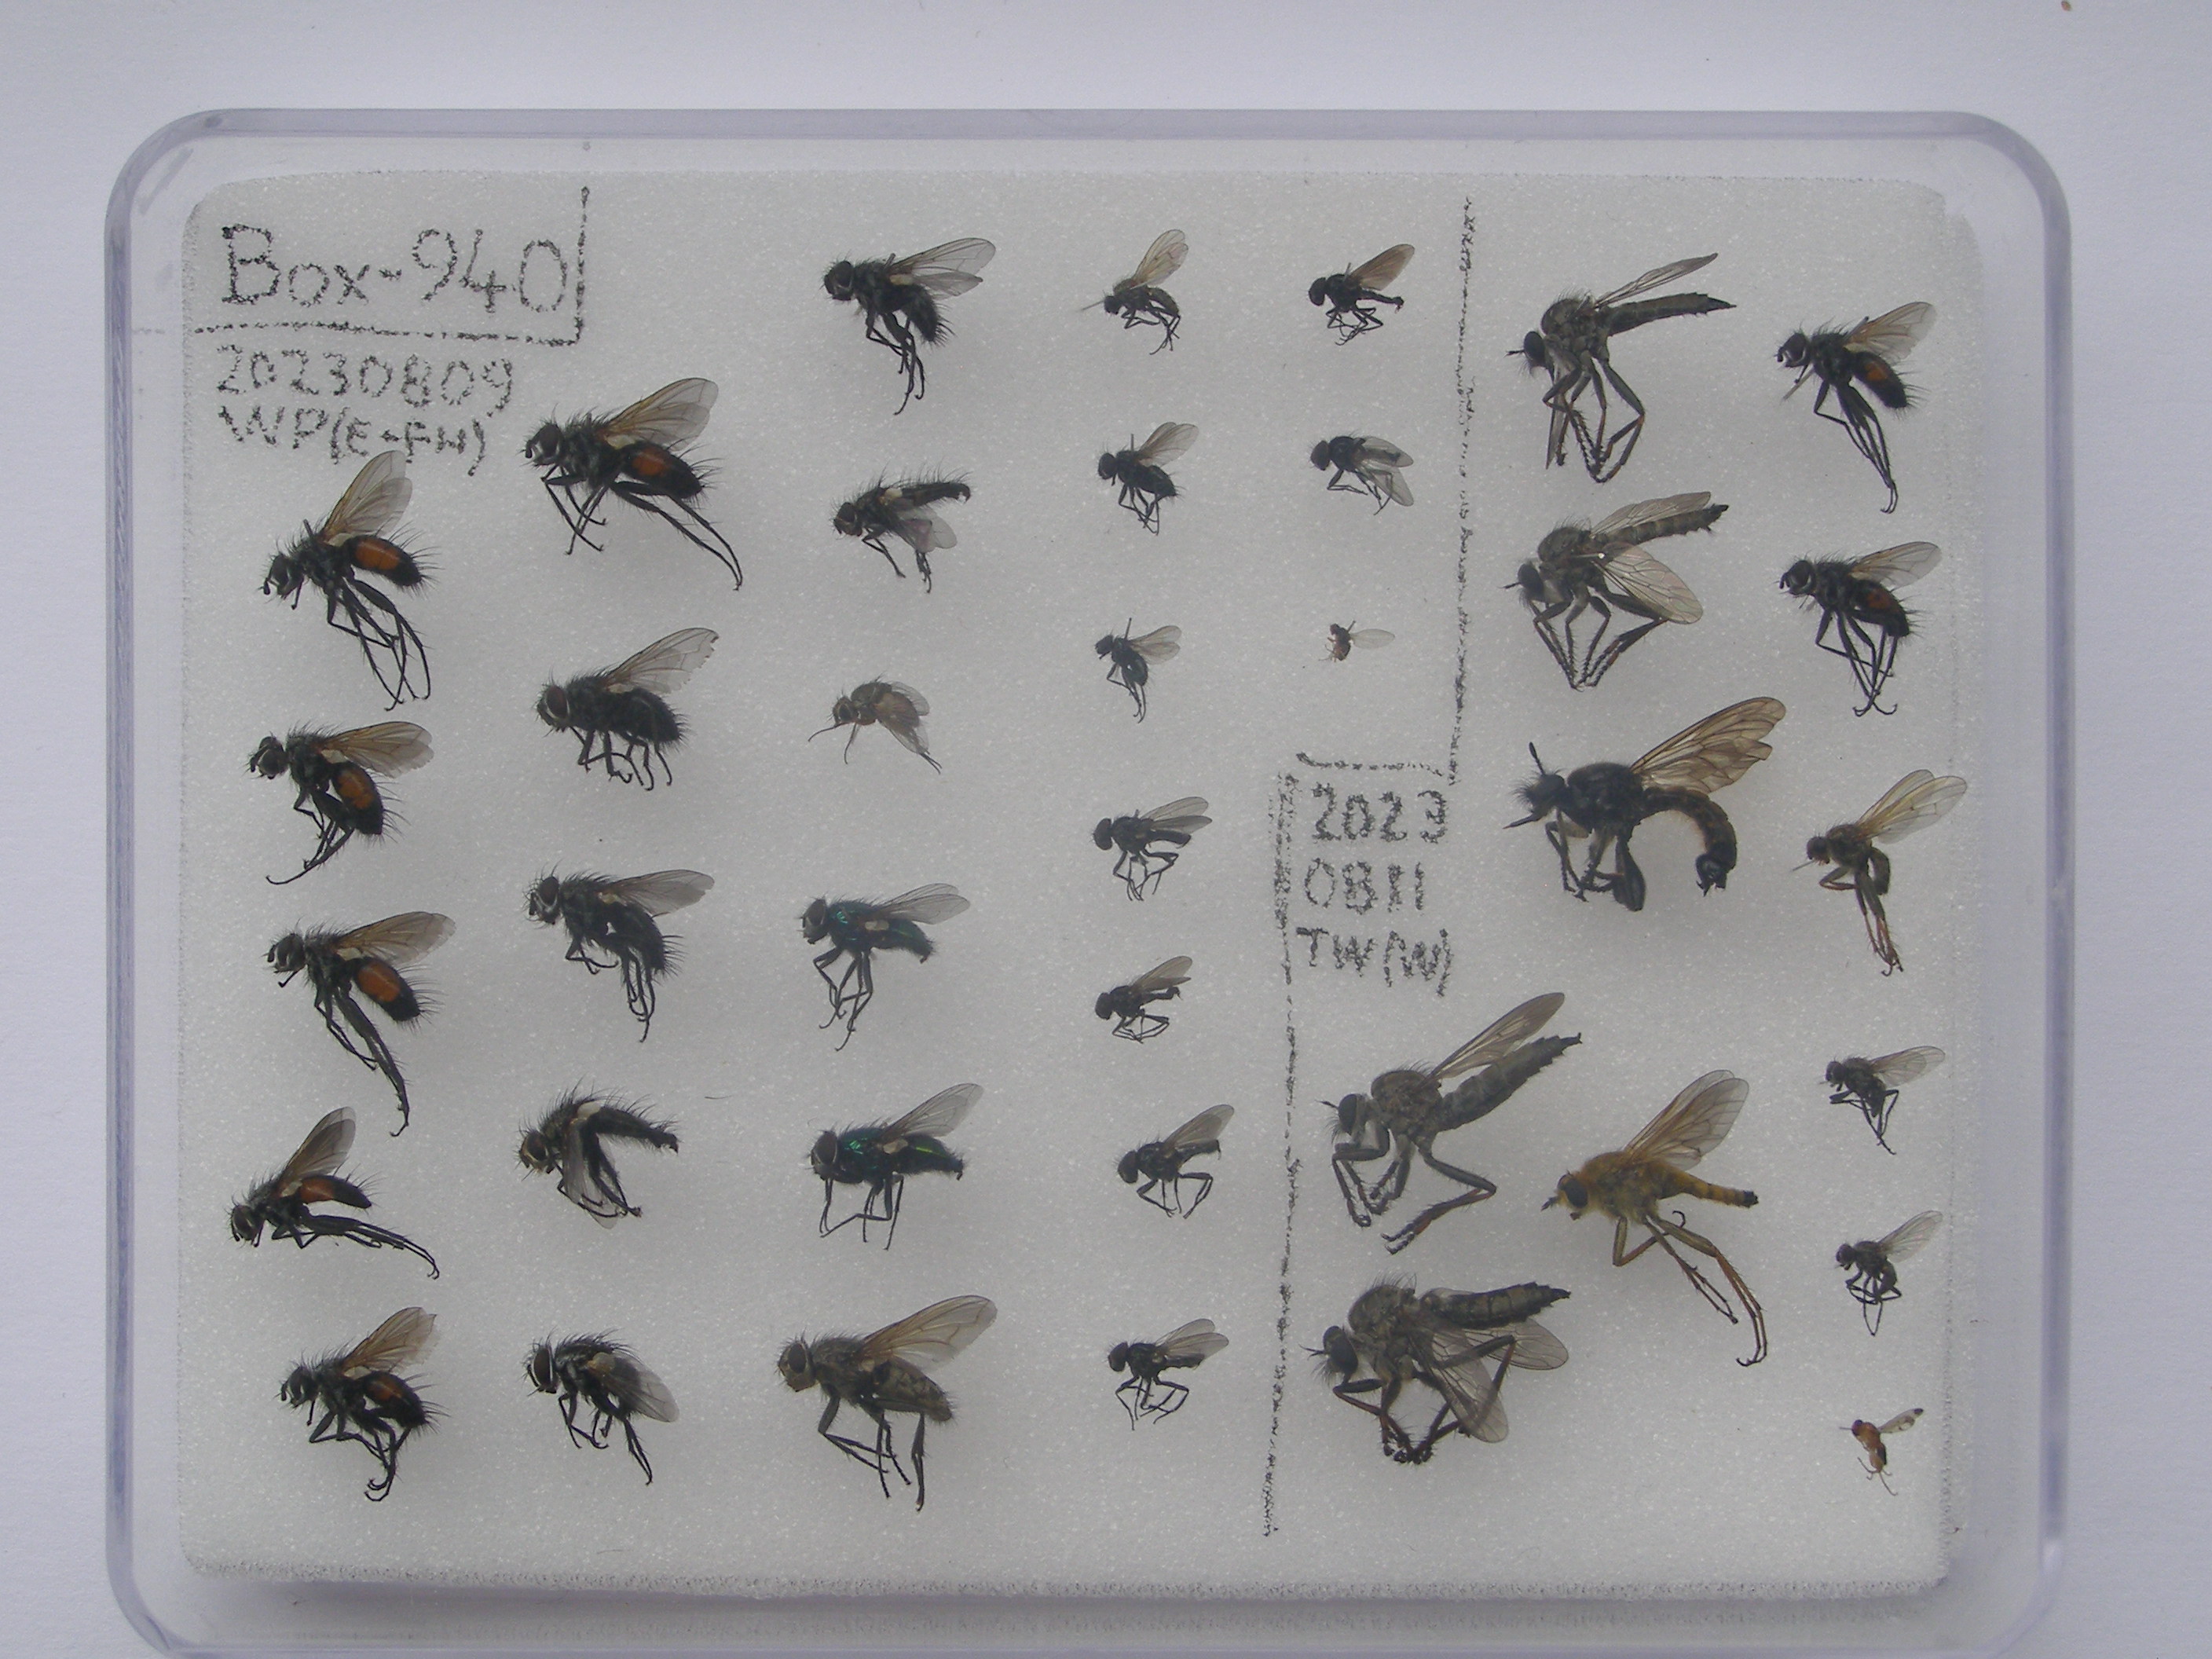 Box-940
20230809
WP(E-FH)
2023
0811
TW(W)